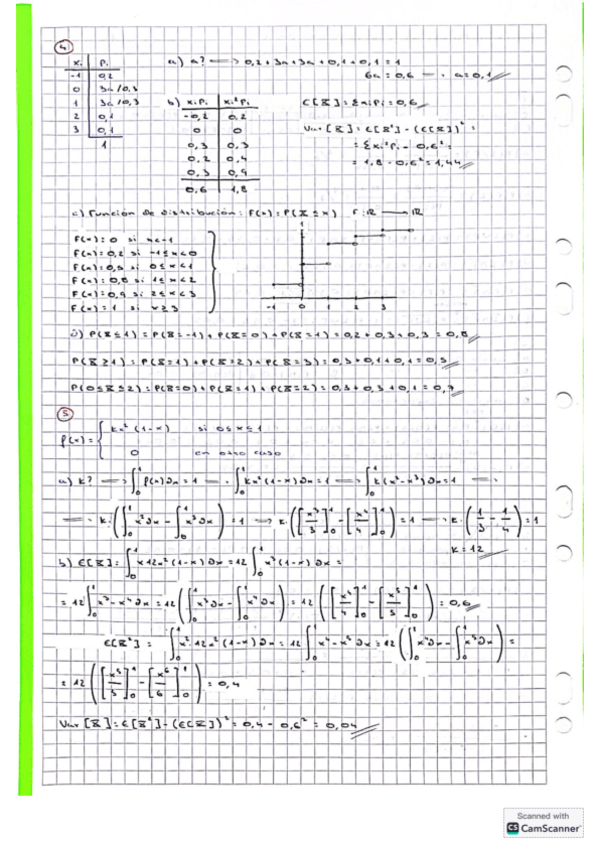 4
xᵢ | pᵢ
-1 | 0,2
0 | 3a/0,3
1 | 3a/0,3
2 | 0,1
3 | 0,1
1
a) a? → 0,2 + 3a + 3a + 0,1 + 0,1 = 1
6a = 0,6 → a = 0,1
b) xᵢpᵢ | xᵢ²pᵢ
-0,2 | 0,2
0 | 0
0,3 | 0,3
0,2 | 0,4
0,3 | 0,9
0,6 | 1,8
E[X] = Σxᵢpᵢ = 0,6
Var[X] = E[X²] - (E[X])² =
= Σxᵢ²pᵢ - 0,6² =
= 1,8 - 0,6² = 1,44
c) Función de distribución: F(x) = P(X ≤ x) F: ℝ → ℝ
F(x) = 0 si x < -1
F(x) = 0,2 si -1 ≤ x < 0
F(x) = 0,5 si 0 ≤ x < 1
F(x) = 0,8 si 1 ≤ x < 2
F(x) = 0,9 si 2 ≤ x < 3
F(x) = 1 si x ≥ 3
1
-1 0 1 2 3
d) P(X ≤ 1) = P(X = -1) + P(X = 0) + P(X = 1) = 0,2 + 0,3 + 0,3 = 0,8
P(X ≥ 1) = P(X = 1) + P(X = 2) + P(X = 3) = 0,3 + 0,1 + 0,1 = 0,5
P(0 ≤ X ≤ 2) = P(X = 0) + P(X = 1) + P(X = 2) = 0,3 + 0,3 + 0,1 = 0,7
5
f(x) = { kx²(1-x) si 0 ≤ x ≤ 1
0 en otro caso
a) k? → ∫₀¹ f(x)dx = 1 → ∫₀¹ kx²(1-x)dx = 1 → ∫₀¹ k(x²-x³)dx = 1 →
→ k·(∫₀¹ x²dx - ∫₀¹ x³dx) = 1 → k·([x³/3]₀¹ - [x⁴/4]₀¹) = 1 → k·(1/3 - 1/4) = 1
k = 12
b) E[X] = ∫₀¹ x·12x²(1-x)dx = 12 ∫₀¹ x³(1-x)dx =
= 12 ∫₀¹ x³-x⁴dx = 12 (∫₀¹ x³dx - ∫₀¹ x⁴dx) = 12 ([x⁴/4]₀¹ - [x⁵/5]₀¹) = 0,6
E[X²] = ∫₀¹ x²·12x²(1-x)dx = 12 ∫₀¹ x⁴-x⁵dx = 12 (∫₀¹ x⁴dx - ∫₀¹ x⁵dx) =
= 12 ([x⁵/5]₀¹ - [x⁶/6]₀¹) = 0,4
Var[X] = E[X²] - (E[X])² = 0,4 - 0,6² = 0,04
Scanned with
CS CamScanner